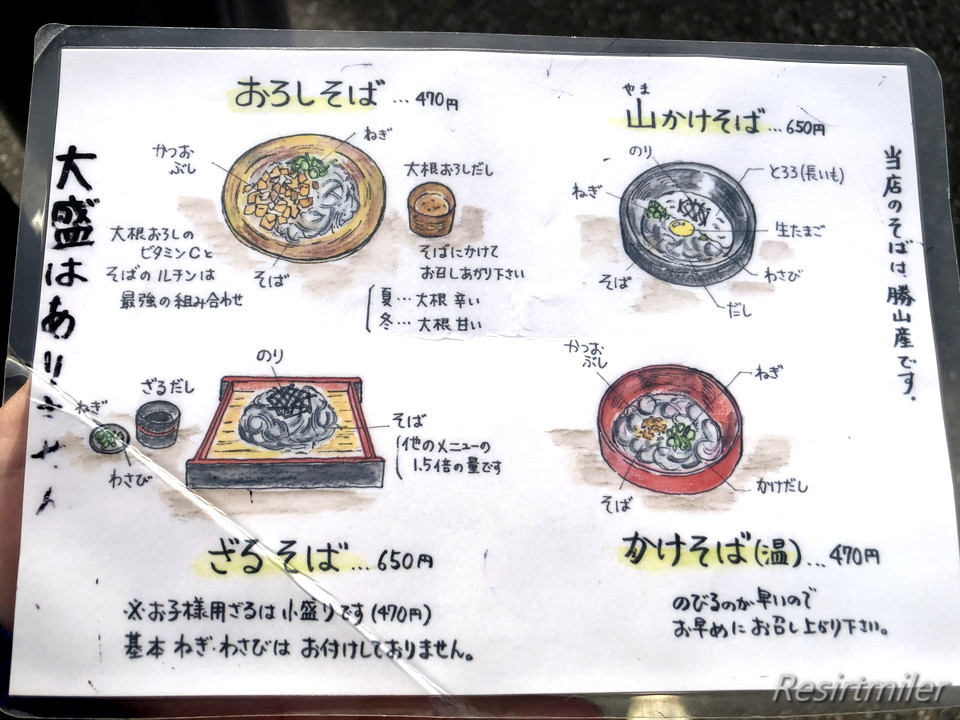 おろしそば…470円
かつお
ぶし
ねぎ
大根おろしだし
大根おろしの
ビタミンCと
そばのルチンは
最強の組み合わせ
そば
そばにかけて
お召しあがり下さい
夏…大根辛い
冬…大根甘い
やま
山かけそば…650円
のり
とろろ(長いも)
ねぎ
生たまご
わさび
そば
だし
当店のそばは勝山産です.
大盛はありません
のり
ざるだし
ねぎ
わさび
そば
他のメニューの
1.5倍の量です
ざるそば…650円
※お子様用ざるは小盛りです(470円)
基本ねぎ・わさびはお付けしておりません。
かつお
ぶし
ねぎ
そば
かけだし
かけそば(温)…470円
のびるのが早いので
お早めにお召し上がり下さい。
Resirtmiler